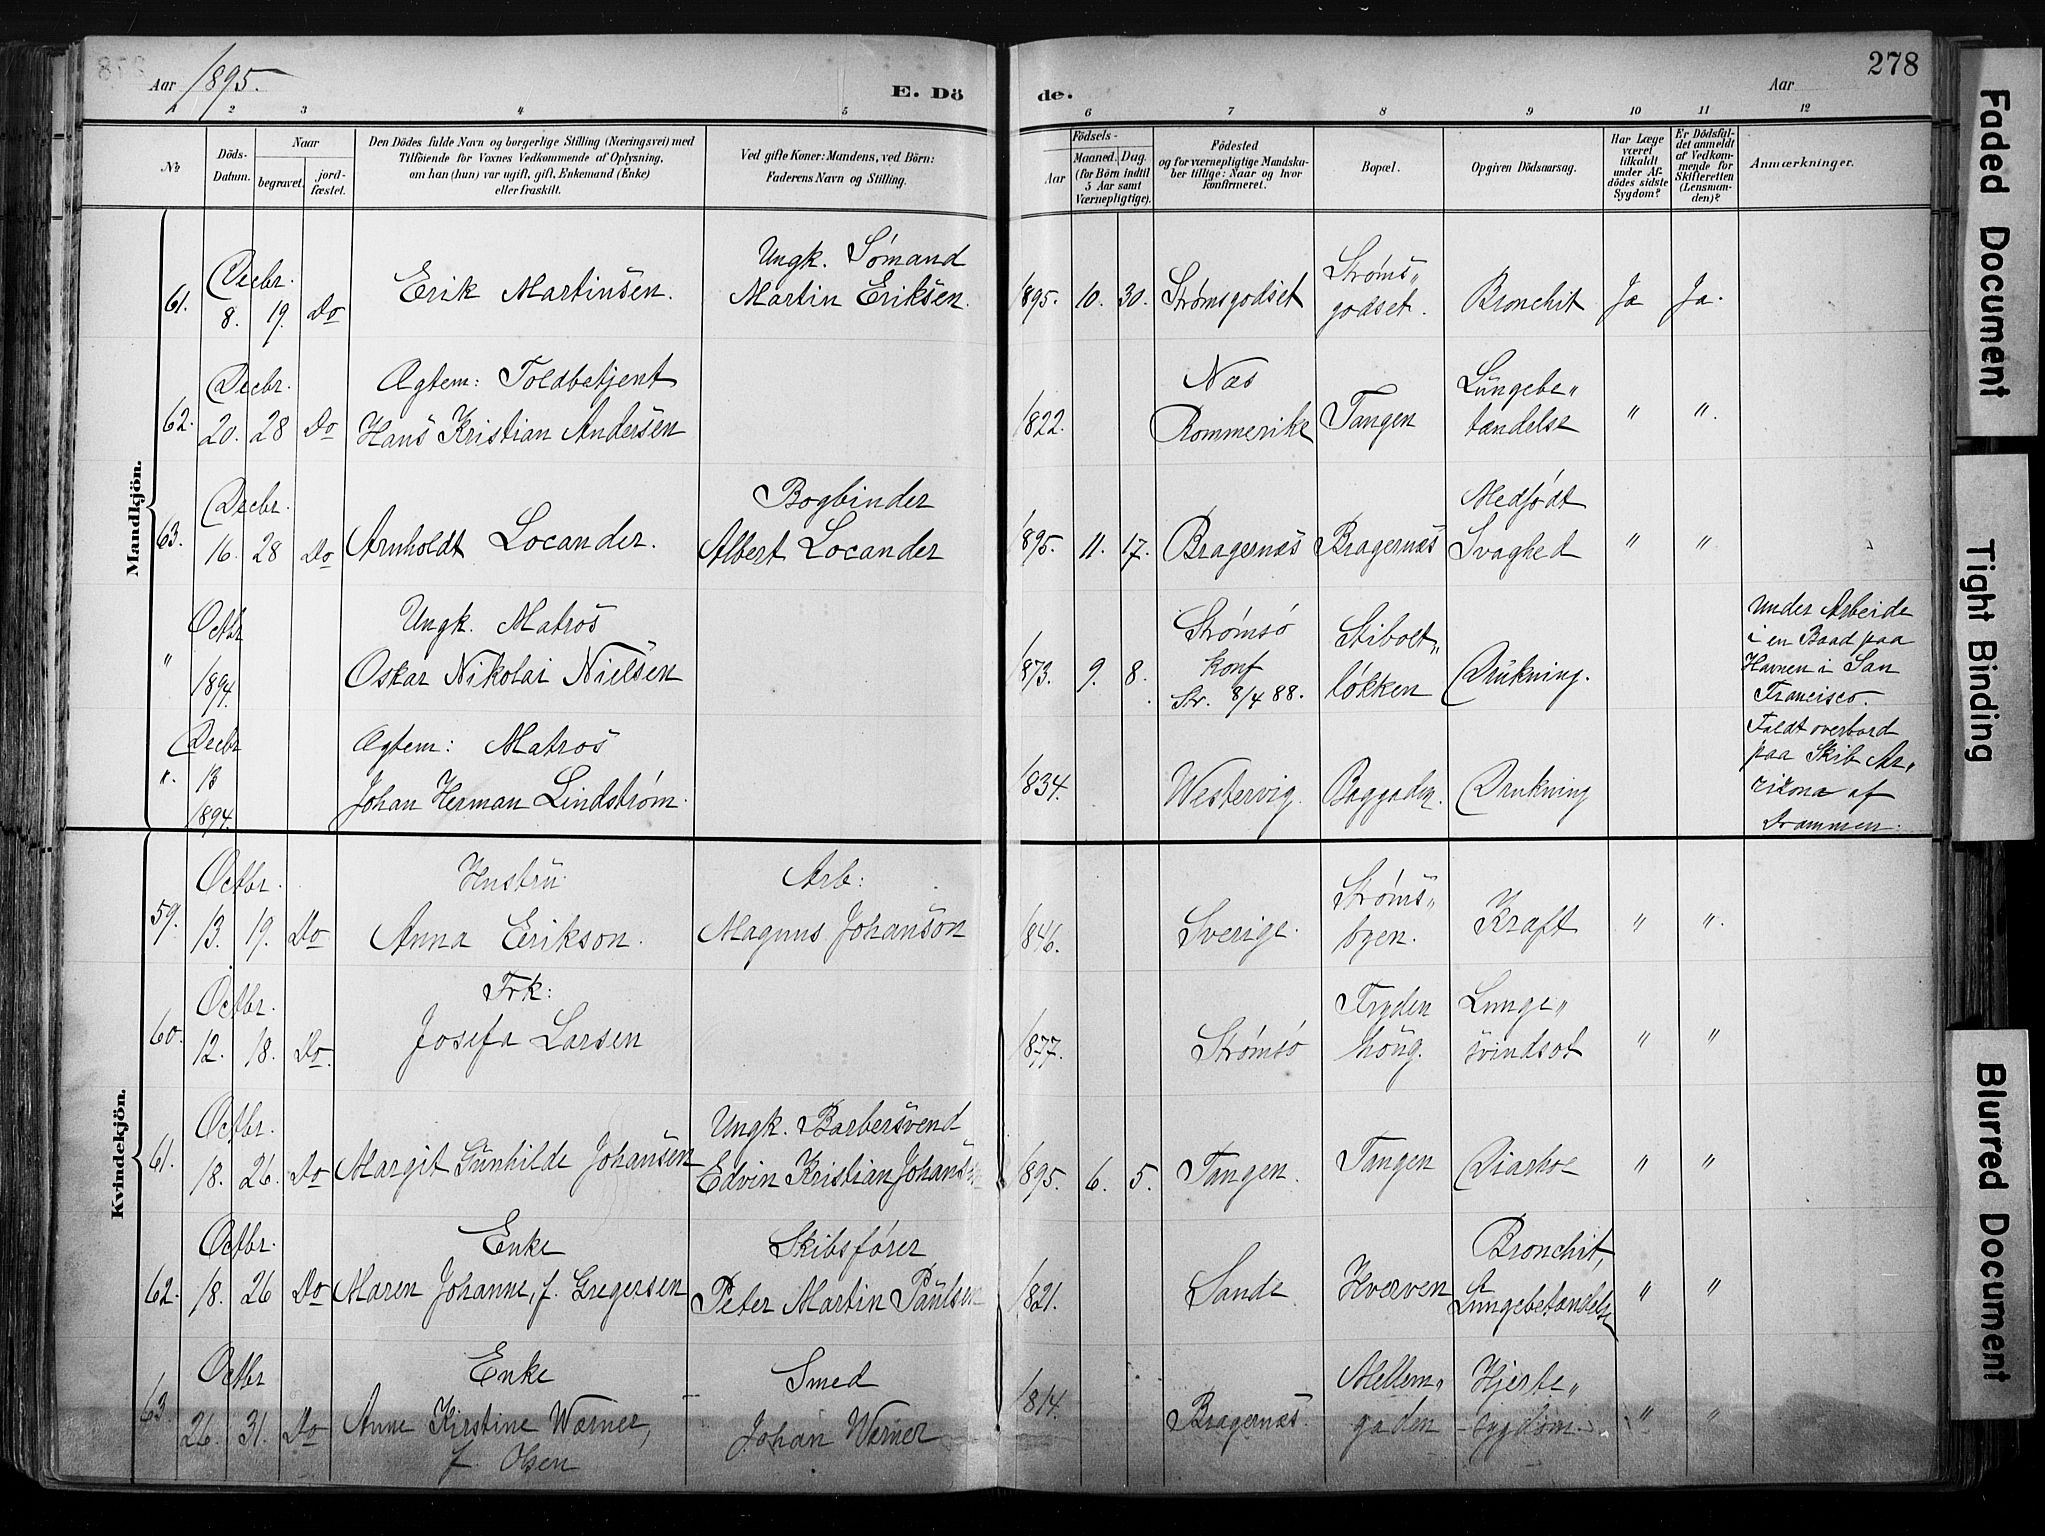 Aar 1895.
E. Dö de.
Aar
278
1 2 3 4 5 6 7 8 9 10 11 12
No
Döds-Datum.
Naar
begravet.
jord-fæstet.
Den Dödes fulde Navn og borgerlige Stilling (Næringsvei) med
Tilföiende for Voxnes Vedkommende af Oplysning,
om han (hun) var ugift, gift, Enkemand (Enke)
eller fraskilt.
Ved gifte Koner: Mandens, ved Börn:
Faderens Navn og Stilling.
Födsels-
Aar
Maaned. Dag.
(for Börn indtil
5 Aar samt
Værnepligtige).
Födested
og for værnepligtige Mandska-
ber tillige: Naar og hvor
konfirmeret.
Bopæl.
Opgiven Dödsaarsag.
Har Læge
været
tilkaldt
under Af-
dödes sidste
Sygdom?
Er Dödsfal-
det anmeldt
af Vedkom-
mende for
Skifteretten
(Lensman-
den)?
Anmærkninger.
Mandkjön.
Decbr. Ungk. Sømand Strøms„
61. 8. 19. Do Erik Martinsen. Martin Eriksen. 1895. 10. 30. Strømsgodset godset. Bronchit Ja Ja.
Decbr. Ægtem: Toldbetjent Næs Lungebe„
62. 20. 28 Do Hans Kristian Andersen 1822. Rommerike Tangen tændelse " ".
Decbr. Bogbinder Medfødt
63. 16. 28 Do Arnholdt Locander. Albert Locander 1895. 11. 17. Bragernæs Bragernæs Svaghed " "
Octbr Ungk. Matros Strømsø Stibolt„ Under Arbeide
" 1894. Oskar Nikolai Nielsen 1873. 9. 8. konf løkken Drukning. i en Baad paa
Str. 8/4 88. Havnen i San
Francisco.
Decbr Ægtem: Matros Faldt overbord
". 13 1894. Johan Herman Lindstrøm. 1834. Westervig. Baggaden. Drukning paa Skib Ar„
rizona af
Drammen.
Kvindekjön.
Octbr. Hustru Arb: Strøms„
59. 13. 19. Do Anna Erikson. Magnus Johanson 1846. Sverige. byen. Kræft " ".
Octbr. Frk: Fryden Lunge„
60. 12. 18. Do. Josefa Larsen 1877. Strømsø haug. svindsot " "
Octbr. Ungk. Barbersvend
61. 18. 26. Do Margit Gunhilde Johansen Edvin Kristian Johansen 1895. 6. 5. Tangen. Tangen Diarhoe " "
Octbr. Enke Skibsfører Bronchit,
62. 18. 26 Do Maren Johanne, f. Gregersen Peter Martin Paulsen 1821. Sande Hværven Lungebetændelse " "
Octbr Enke Smed Mellem„ Hjerte„
63. 26. 31. Do Anne Kirstine Wærner, Johan Wærner 1814. Bragernæs. gaden sygdom. " "
f. Olsen
Faded Document
Tight Binding
Blurred Document